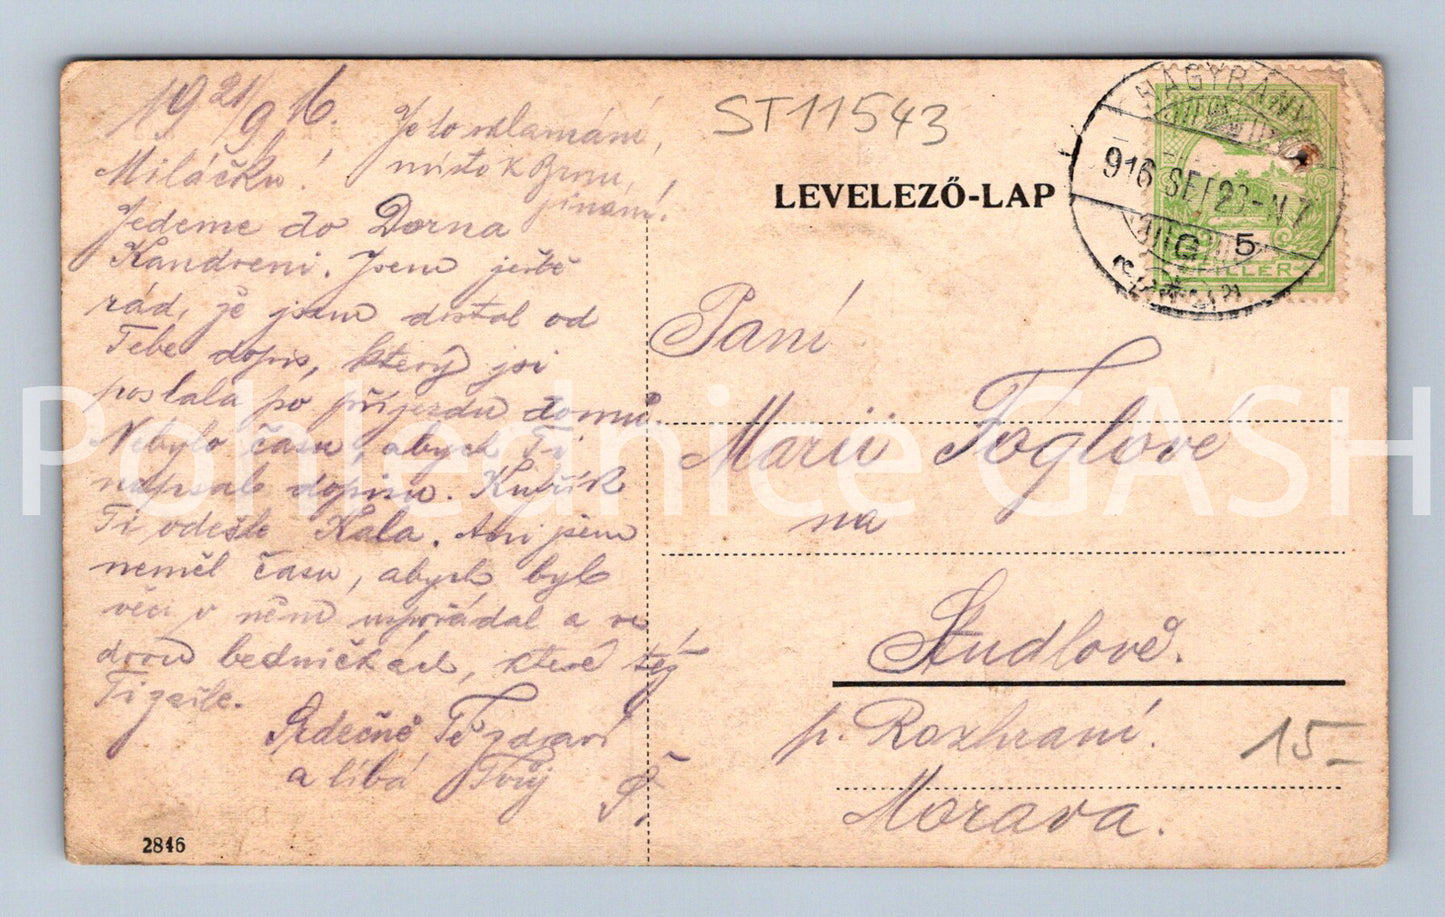 19 21/9 16.
Je to zklamání,
místo k Brnu,
jinam!
Miláčku!
Jedeme do Dorna
Kandreni. Jsem ještě
rád, že jsem dostal od
Tebe dopis, který jsi
poslala po příjezdu domů.
Nebylo času, abych Ti
napsal dopisu. Kufřík
Ti odešle Kala. Ani jsem
neměl času, abych byl
věci v něm uspořádal a ve
dvou bedničkách, které též
Ti zašle.
Srdečně Tě zdraví
a líbá Tvůj
2846
ST11543
LEVELEZŐ-LAP
NAGYBÁNYA
916 SEP 23
G 5
FILLÉR
Paní
Marii Foglové
na
Studlově.
p. Rozhraní.
Morava.
15-
Pohlednice GASH